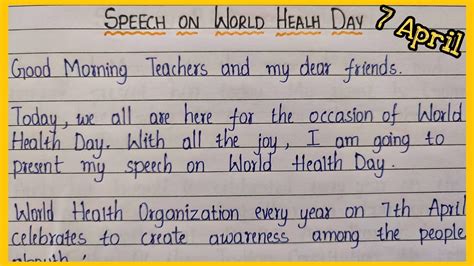 SPEECH ON WORLD HEALH DAY
7 April
Good Morning Teachers and my dear friends.
Today, we all are here for the occasion of World
Health Day. With all the joy, I am going to
present my speech on World Health Day.
World Health Organization every year on 7th April
celebrates to create awareness among the people